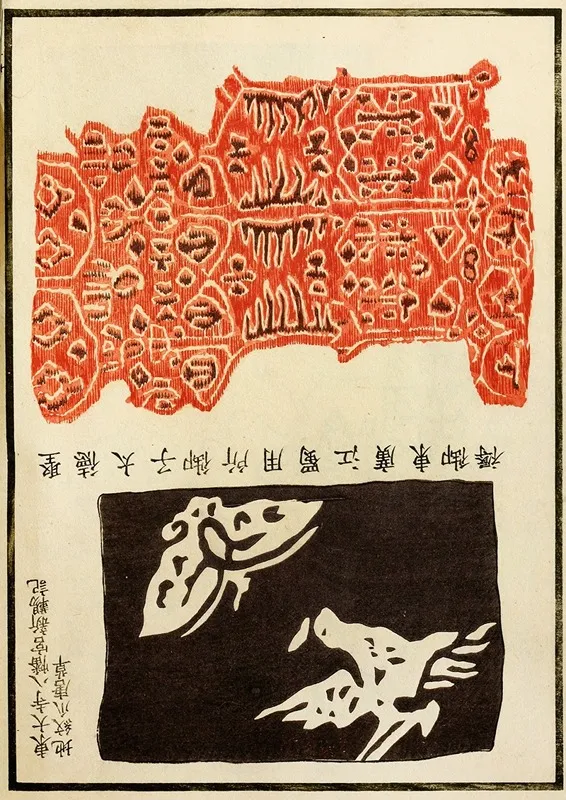 聖徳太子御所用蜀江廣東御褥
東大寺八幡宮新記
地紋小唐草